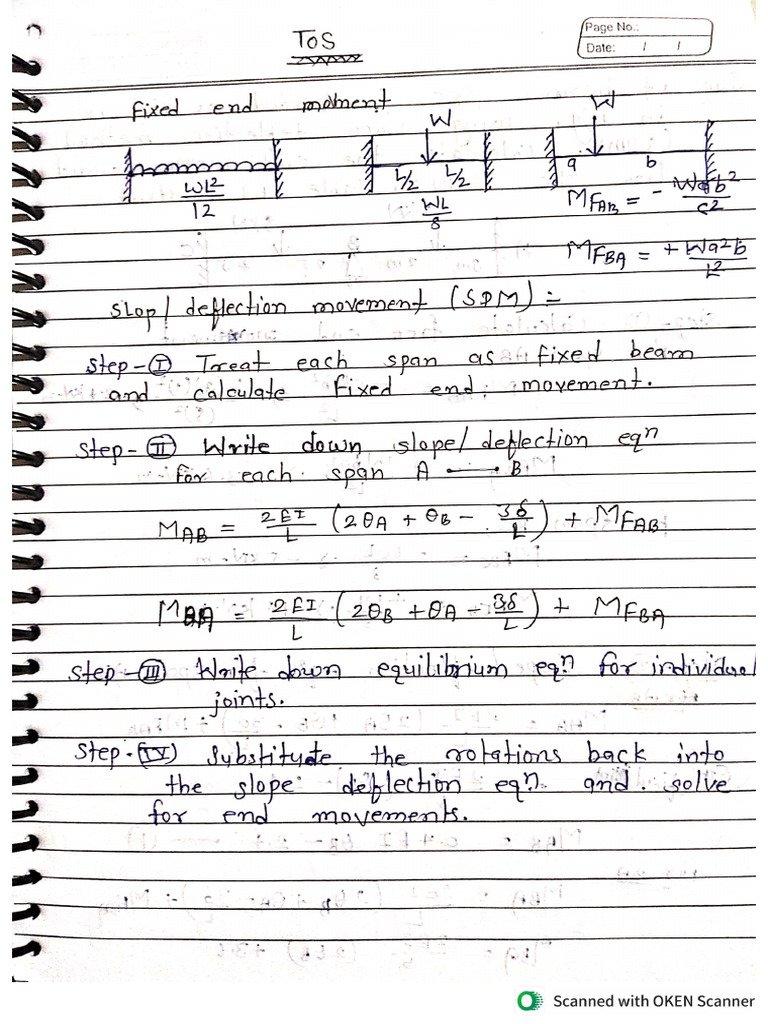 TOS
Page No.:
Date: / /
Fixed end moment
W
W
L/2 L/2
a b
WL²/12
WL/8
M_FAB = - Wab²/L²
M_FBA = + Wa²b/L²
Slop/ deflection movement (SDM) =
Step-(I) Treat each span as fixed beam
and calculate fixed end movement.
Step-(II) Write down slope/deflection eqn
for each span A — B
M_AB = 2EI/L (2θA + θB - 3δ/L) + M_FAB
M_BA = 2EI/L (2θB + θA - 3δ/L) + M_FBA
Step-(III) Write down equilibrium eqn for individual
joints.
Step-(IV) Substitute the rotations back into
the slope deflection eqn and solve
for end movements.
Scanned with OKEN Scanner